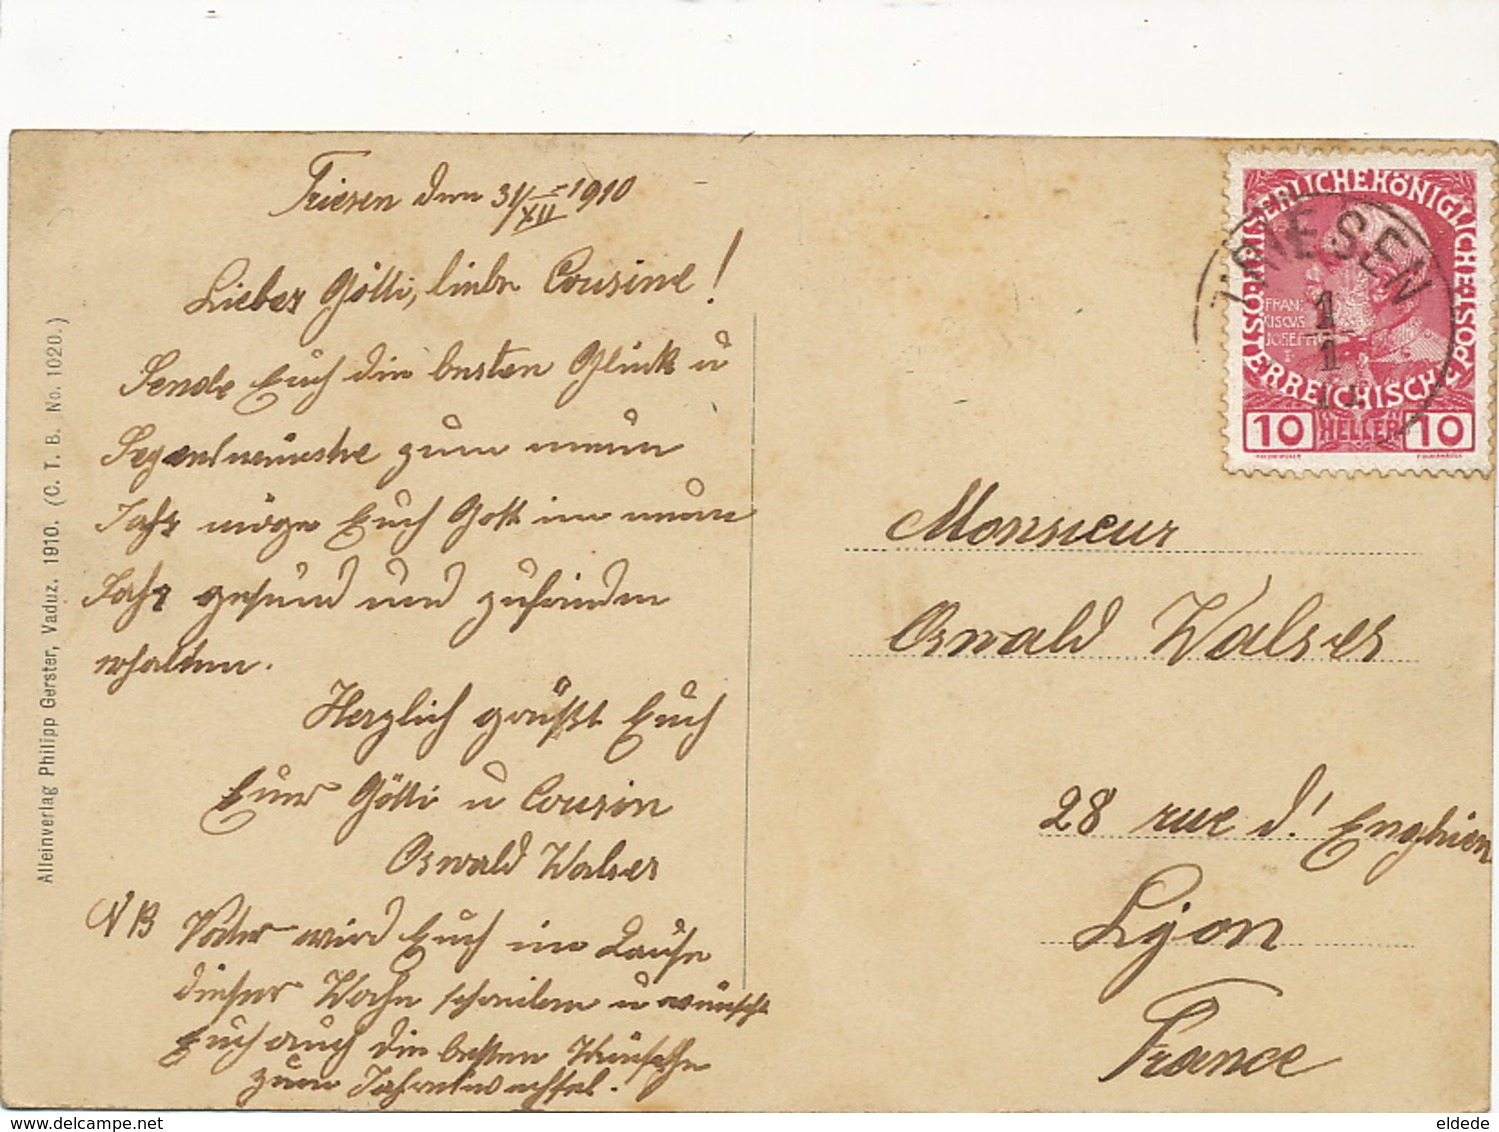 Triesen den 31/XII 1910
Lieber Götti, liebe Cousine!
Sende Euch die besten Glück u
Segenswünsche zum neuen
Jahr möge Euch Gott im neuen
Jahr gesund und zufrieden
erhalten.
Herzlich grüßt Euch
Euer Götti u Cousin
Oswald Walser
NB Vater wird Euch im Laufe
dieser Woche schreiben u wünscht
Euch auch die besten Wünsche
zum Jahreswechsel.
Alleinverlag Philipp Gerster, Vaduz. 1910. (C. T. B. No. 1020.)
KAISERLICHEKÖNIGLICHE
ÖSTERREICHISCHE POST
FRAN
CISCVS
JOSEPH
I
TRIESEN
1
1
10 HELLER 10
Monsieur
Oswald Walser
28 rue d'Enghien
Lyon
France
delcampe.net
eldede